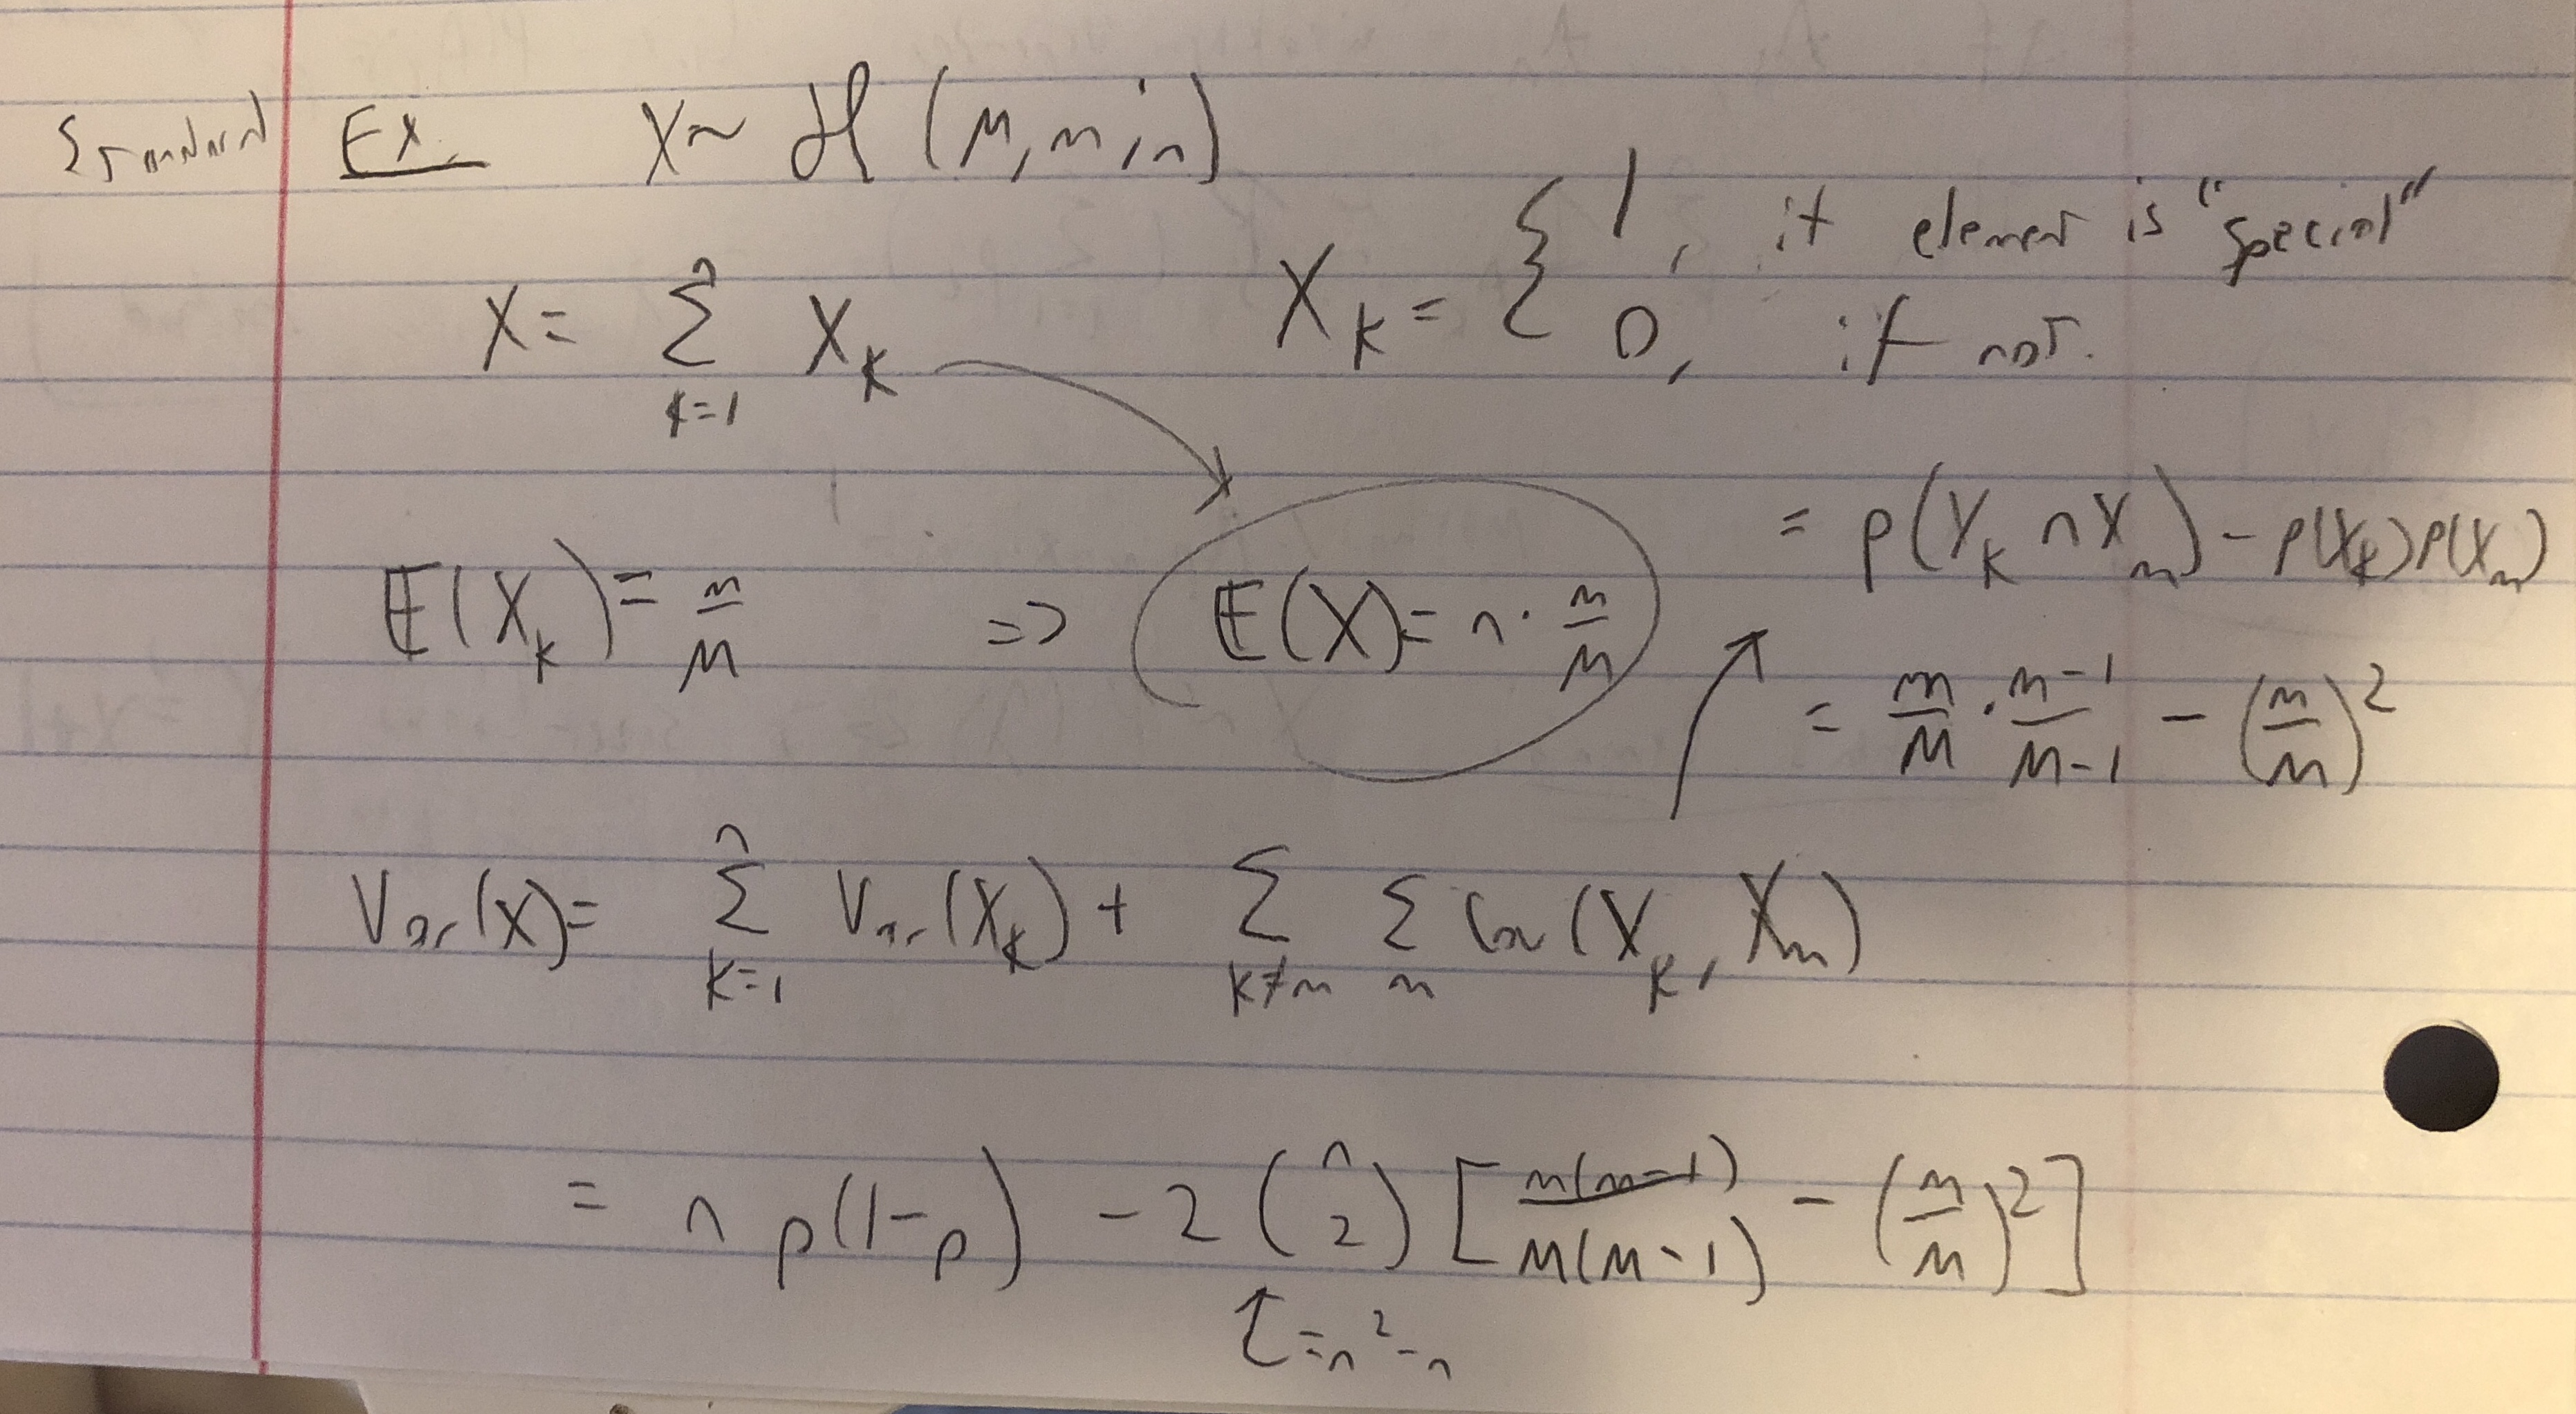 Standard Ex. X ~ H (M, m, n)
X = Σ_{k=1}^{n} X_k    X_k = { 1, if element is "special"
0, if not.
= P(X_k ∩ X_m) - P(X_k)P(X_m)
E(X_k) = m/M => E(X) = n · m/M
= m/M · m-1/M-1 - (m/M)^2
Var(X) = Σ_{k=1}^{n} Var(X_k) + Σ_{k≠m} Σ_m Cov(X_k, X_m)
= n p(1-p) - 2 (n 2) [ m(m-1)/M(M-1) - (m/M)^2 ]
↑ = n^2 - n